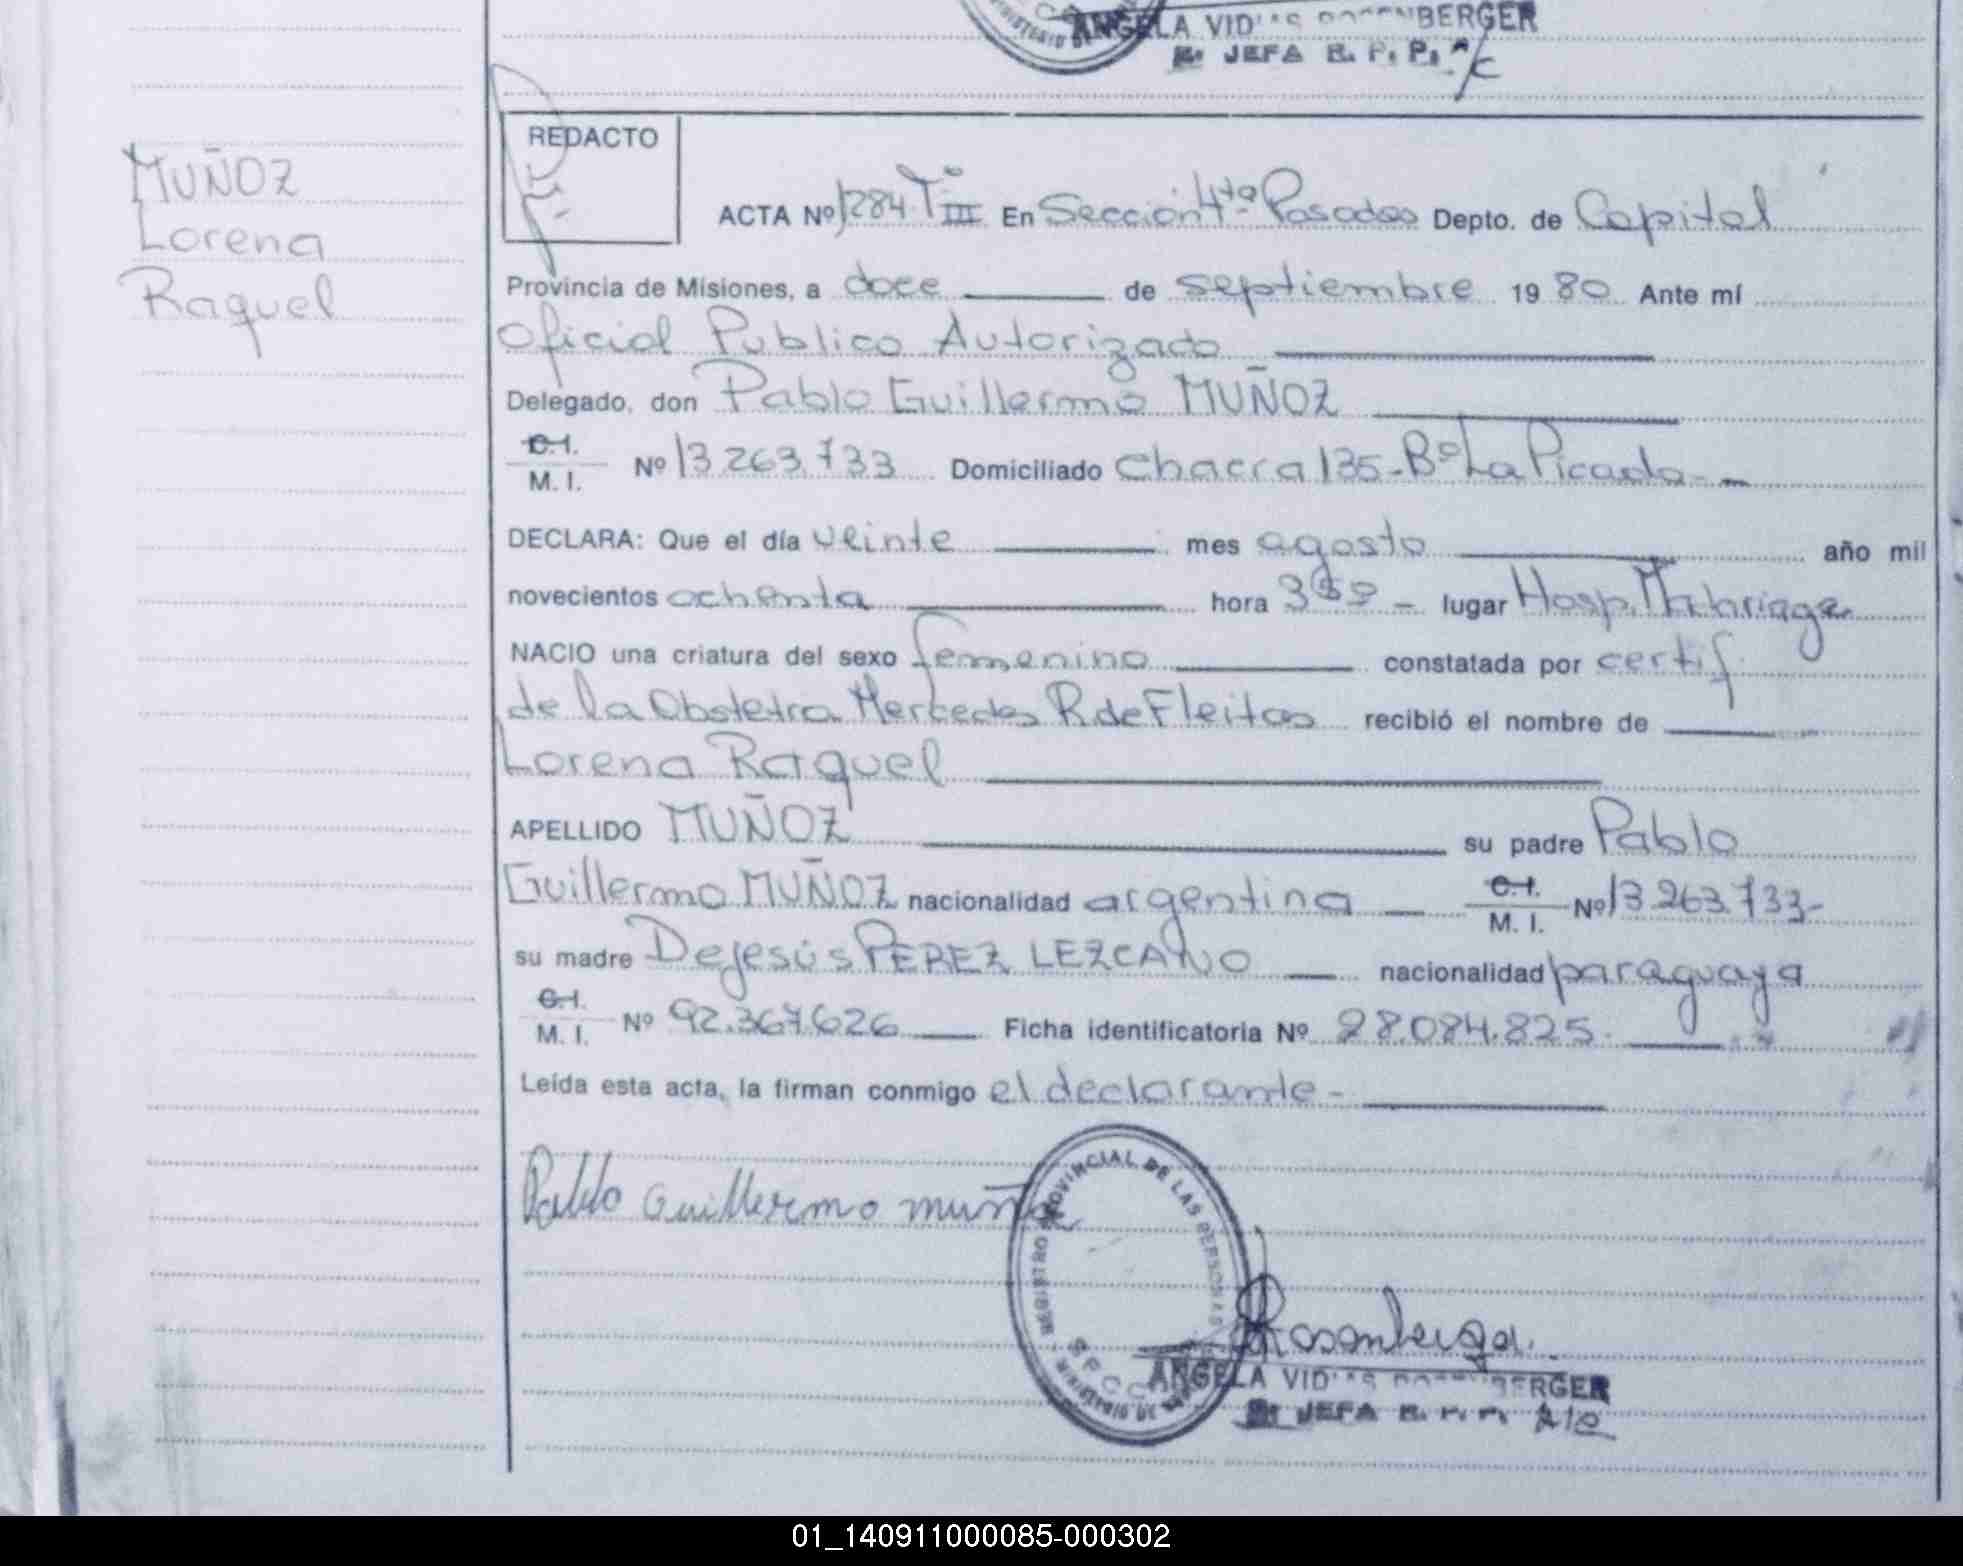 ANGELA VID BERGER
JEFA R. P. P. A/C
MUÑOZ
Lorena
Raquel
REDACTO
ACTA Nº 1284 Tº III En Sección 4ta Posadas Depto. de Capital
Provincia de Misiones, a doce de septiembre 19 80 Ante mí
Oficial Publico Autorizado
Delegado, don Pablo Guillermo MUÑOZ
C.I.
M. I. Nº 13.263.733 Domiciliado Chacra 135-Bº La Picada-
DECLARA: Que el día veinte mes agosto año mil
novecientos ochenta hora lugar Hosp. Madariaga
NACIO una criatura del sexo femenino constatada por certif
de la Obstetra Mercedes R. de Fleitas recibió el nombre de
Lorena Raquel
APELLIDO MUÑOZ su padre Pablo
Guillermo MUÑOZ nacionalidad argentina C.I. M. I. Nº 13.263.733-
su madre Dejesús PEREZ LEZCANO nacionalidad paraguaya
C.I.
M. I. Nº 92.367.626 Ficha identificatoria Nº 28.084.825.
Leída esta acta, la firman conmigo el declarante-
Pablo Guillermo muñoz
REGISTRO PROVINCIAL DE LAS PERSONAS
Rosenberger
ANGELA VID BERGER
JEFA A/C
01_140911000085-000302